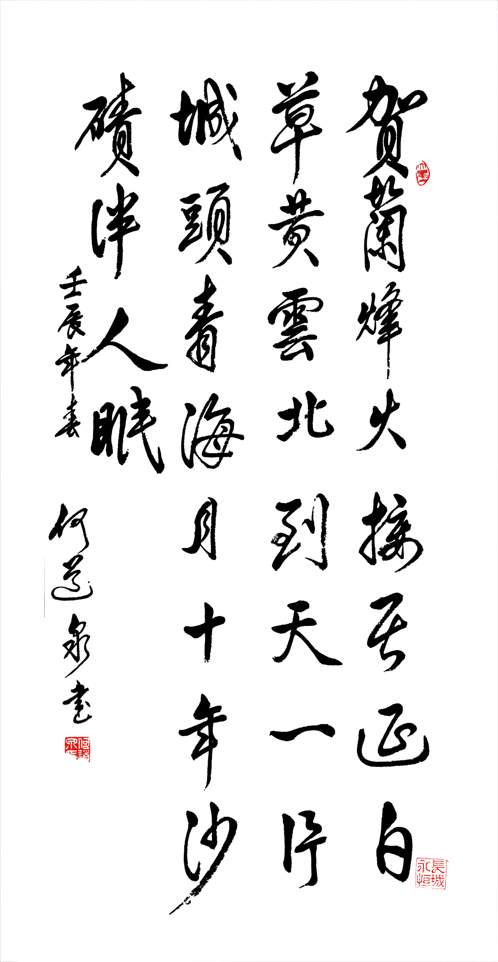 賀蘭烽火接居延白
草黄雲北到天一片
城頭青海月十年沙
磧伴人眠
壬辰年春
何道泉書
長城永恒